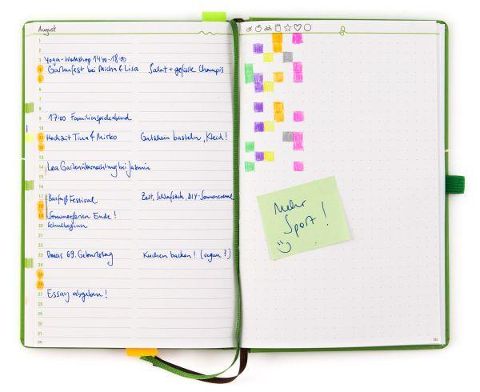 August
Yoga-Workshop 14:00-18:00
Gartenfest bei Micha & Lisa Salat + gefüllte Champis
17:00 Familienspieleabend
Hochzeit Tina & Mirko Gutschein basteln, Kleid!
Lea Gartenübernachtung bei Jasmin
Barfuß Festival Zelt, Schlafsack, DIY-Sonnencreme
Sommerferien Ende!
Schulbeginn
69. Geburtstag Kuchen backen! (vegan?)
Essay abgeben!
Mehr
Sport!